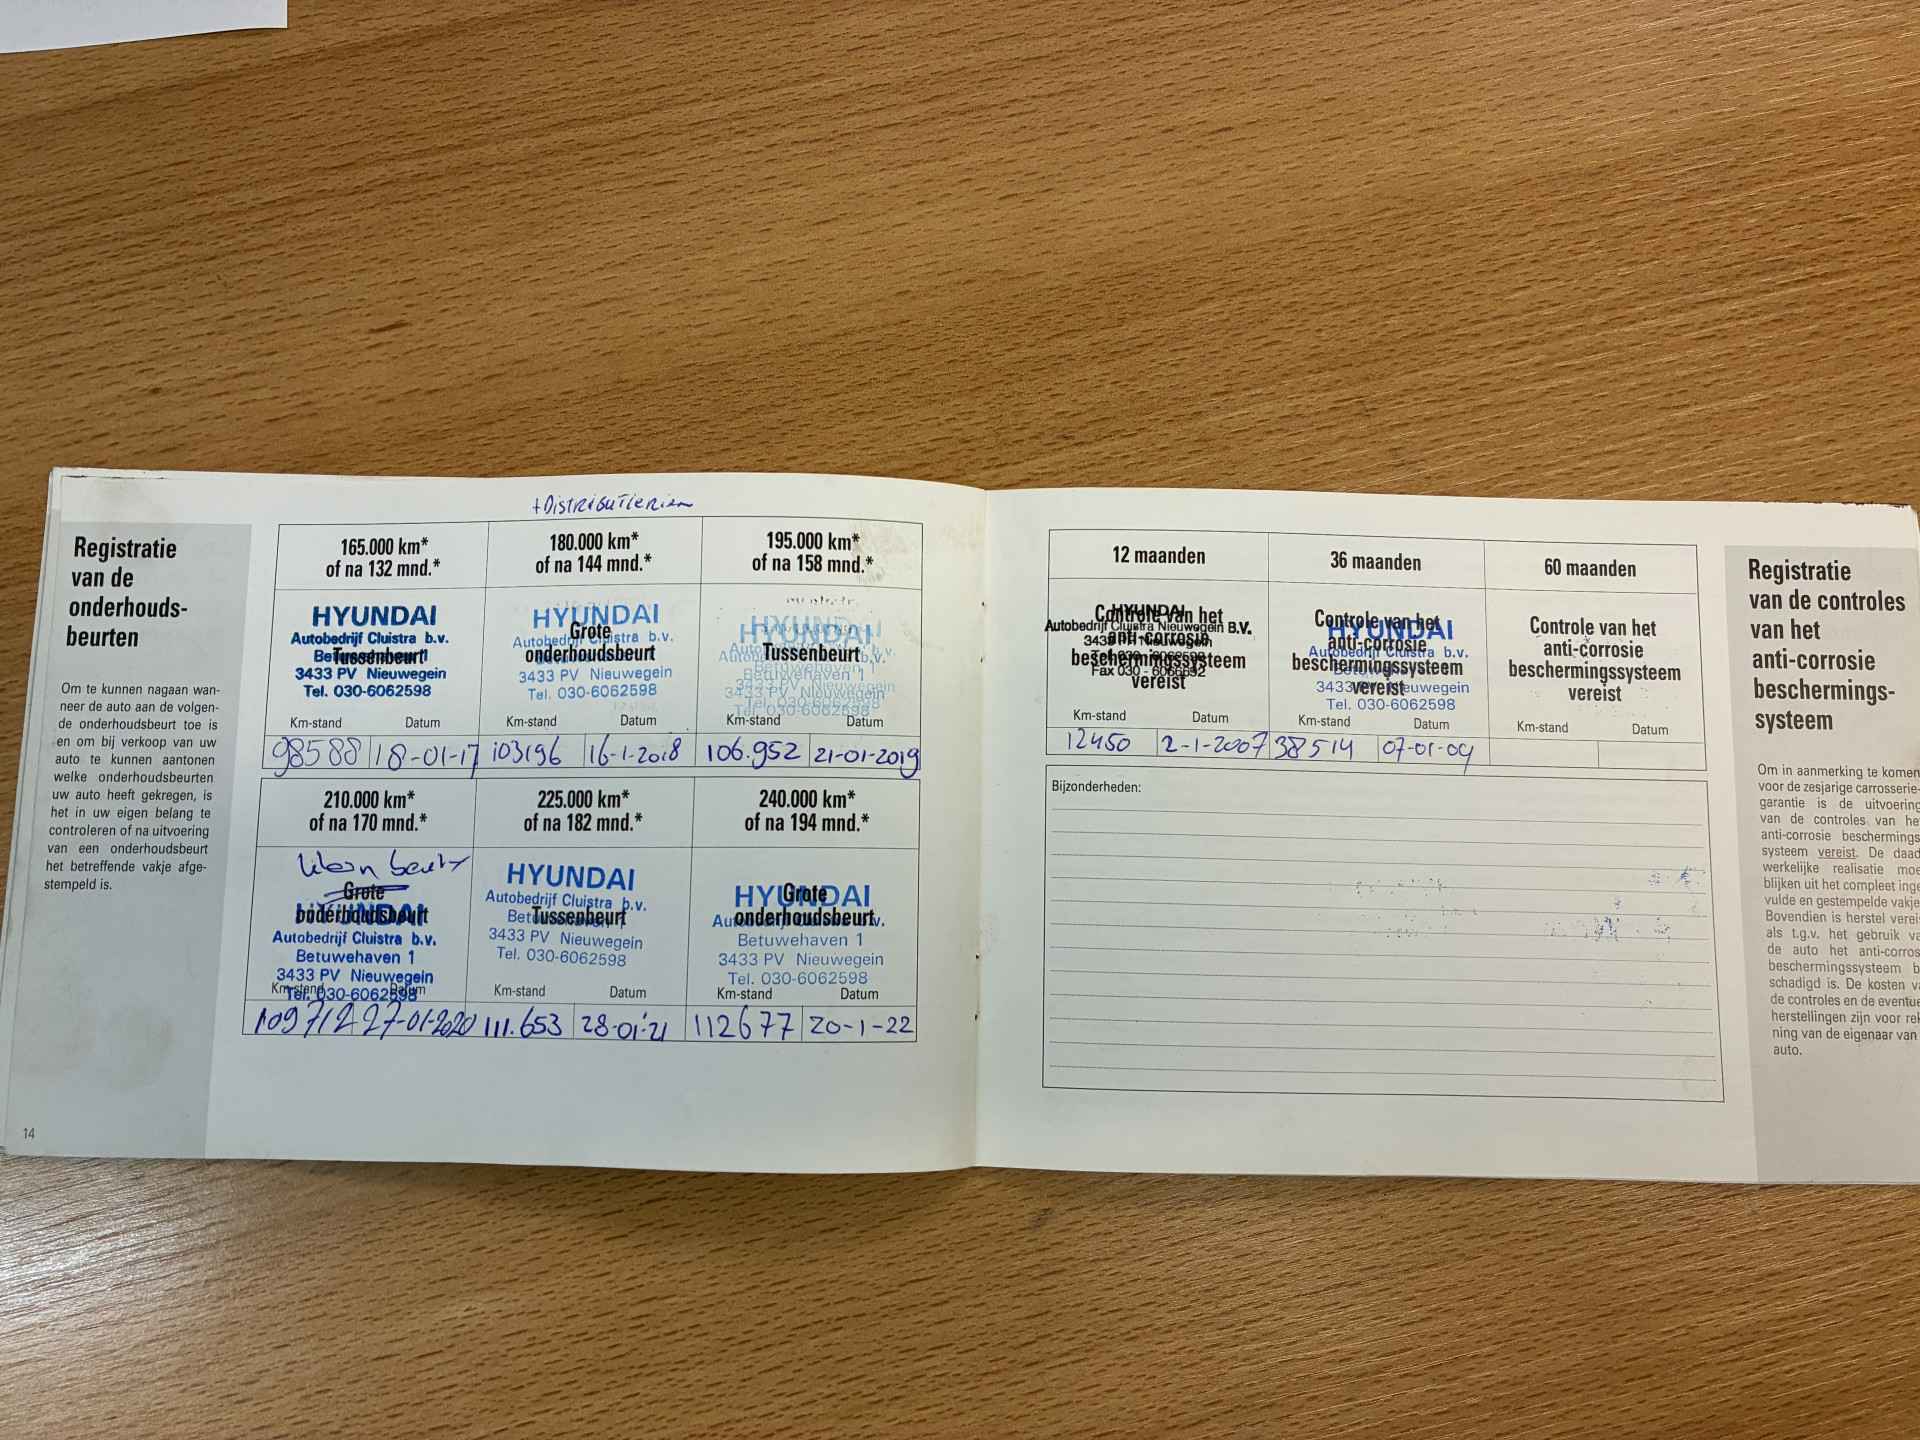 +Distributieriem
Registratie
van de
onderhouds-
beurten
Om te kunnen nagaan wan-
neer de auto aan de volgen-
de onderhoudsbeurt toe is
en om bij verkoop van uw
auto te kunnen aantonen
welke onderhoudsbeurten
uw auto heeft gekregen, is
het in uw eigen belang te
controleren of na uitvoering
van een onderhoudsbeurt
het betreffende vakje afge-
stempeld is.
14
165.000 km*
of na 132 mnd.*
HYUNDAI
Autobedrijf Cluistra b.v.
Tussenbeurt
3433 PV Nieuwegein
Tel. 030-6062598
Km-stand Datum
98588 18-01-17
180.000 km*
of na 144 mnd.*
HYUNDAI
Grote
Autobedrijf Cluistra b.v.
onderhoudsbeurt
3433 PV Nieuwegein
Tel. 030-6062598
Km-stand Datum
103196 16-1-2018
195.000 km*
of na 158 mnd.*
HYUNDAI
Tussenbeurt
Betuwehaven 1
3433 PV Nieuwegein
Tel. 030-6062598
Km-stand Datum
106.952 21-01-2019
210.000 km*
of na 170 mnd.*
Klein beurt
Grote
HYUNDAI
onderhoudsbeurt
Autobedrijf Cluistra b.v.
Betuwehaven 1
3433 PV Nieuwegein
Km-stand Datum
Tel. 030-6062598
109712 27-01-2020
225.000 km*
of na 182 mnd.*
HYUNDAI
Autobedrijf Cluistra b.v.
Tussenbeurt
3433 PV Nieuwegein
Tel. 030-6062598
Km-stand Datum
111.653 28-01-21
240.000 km*
of na 194 mnd.*
HYUNDAI
Grote
onderhoudsbeurt
Autobedrijf Cluistra b.v.
Betuwehaven 1
3433 PV Nieuwegein
Tel. 030-6062598
Km-stand Datum
112677 20-1-22
12 maanden
HYUNDAI
Controle van het
Autobedrijf Cluistra Nieuwegein B.V.
anti-corrosie
beschermingssysteem
vereist
Km-stand Datum
12450 2-1-2007
36 maanden
Controle van het
HYUNDAI
anti-corrosie
Autobedrijf Cluistra b.v.
beschermingssysteem
3433 PV Nieuwegein
vereist
Tel. 030-6062598
Km-stand Datum
38514 07-01-09
60 maanden
Controle van het
anti-corrosie
beschermingssysteem
vereist
Km-stand Datum
Bijzonderheden:
Registratie
van de controles
van het
anti-corrosie
beschermings-
systeem
Om in aanmerking te komen
voor de zesjarige carrosserie-
garantie is de uitvoering
van de controles van het
anti-corrosie beschermings
systeem vereist. De daad
werkelijke realisatie moe
blijken uit het compleet inge
vulde en gestempelde vakje
Bovendien is herstel verei
als t.g.v. het gebruik va
de auto het anti-corros
beschermingssysteem b
schadigd is. De kosten va
de controles en de eventue
herstellingen zijn voor rek
ning van de eigenaar van
auto.